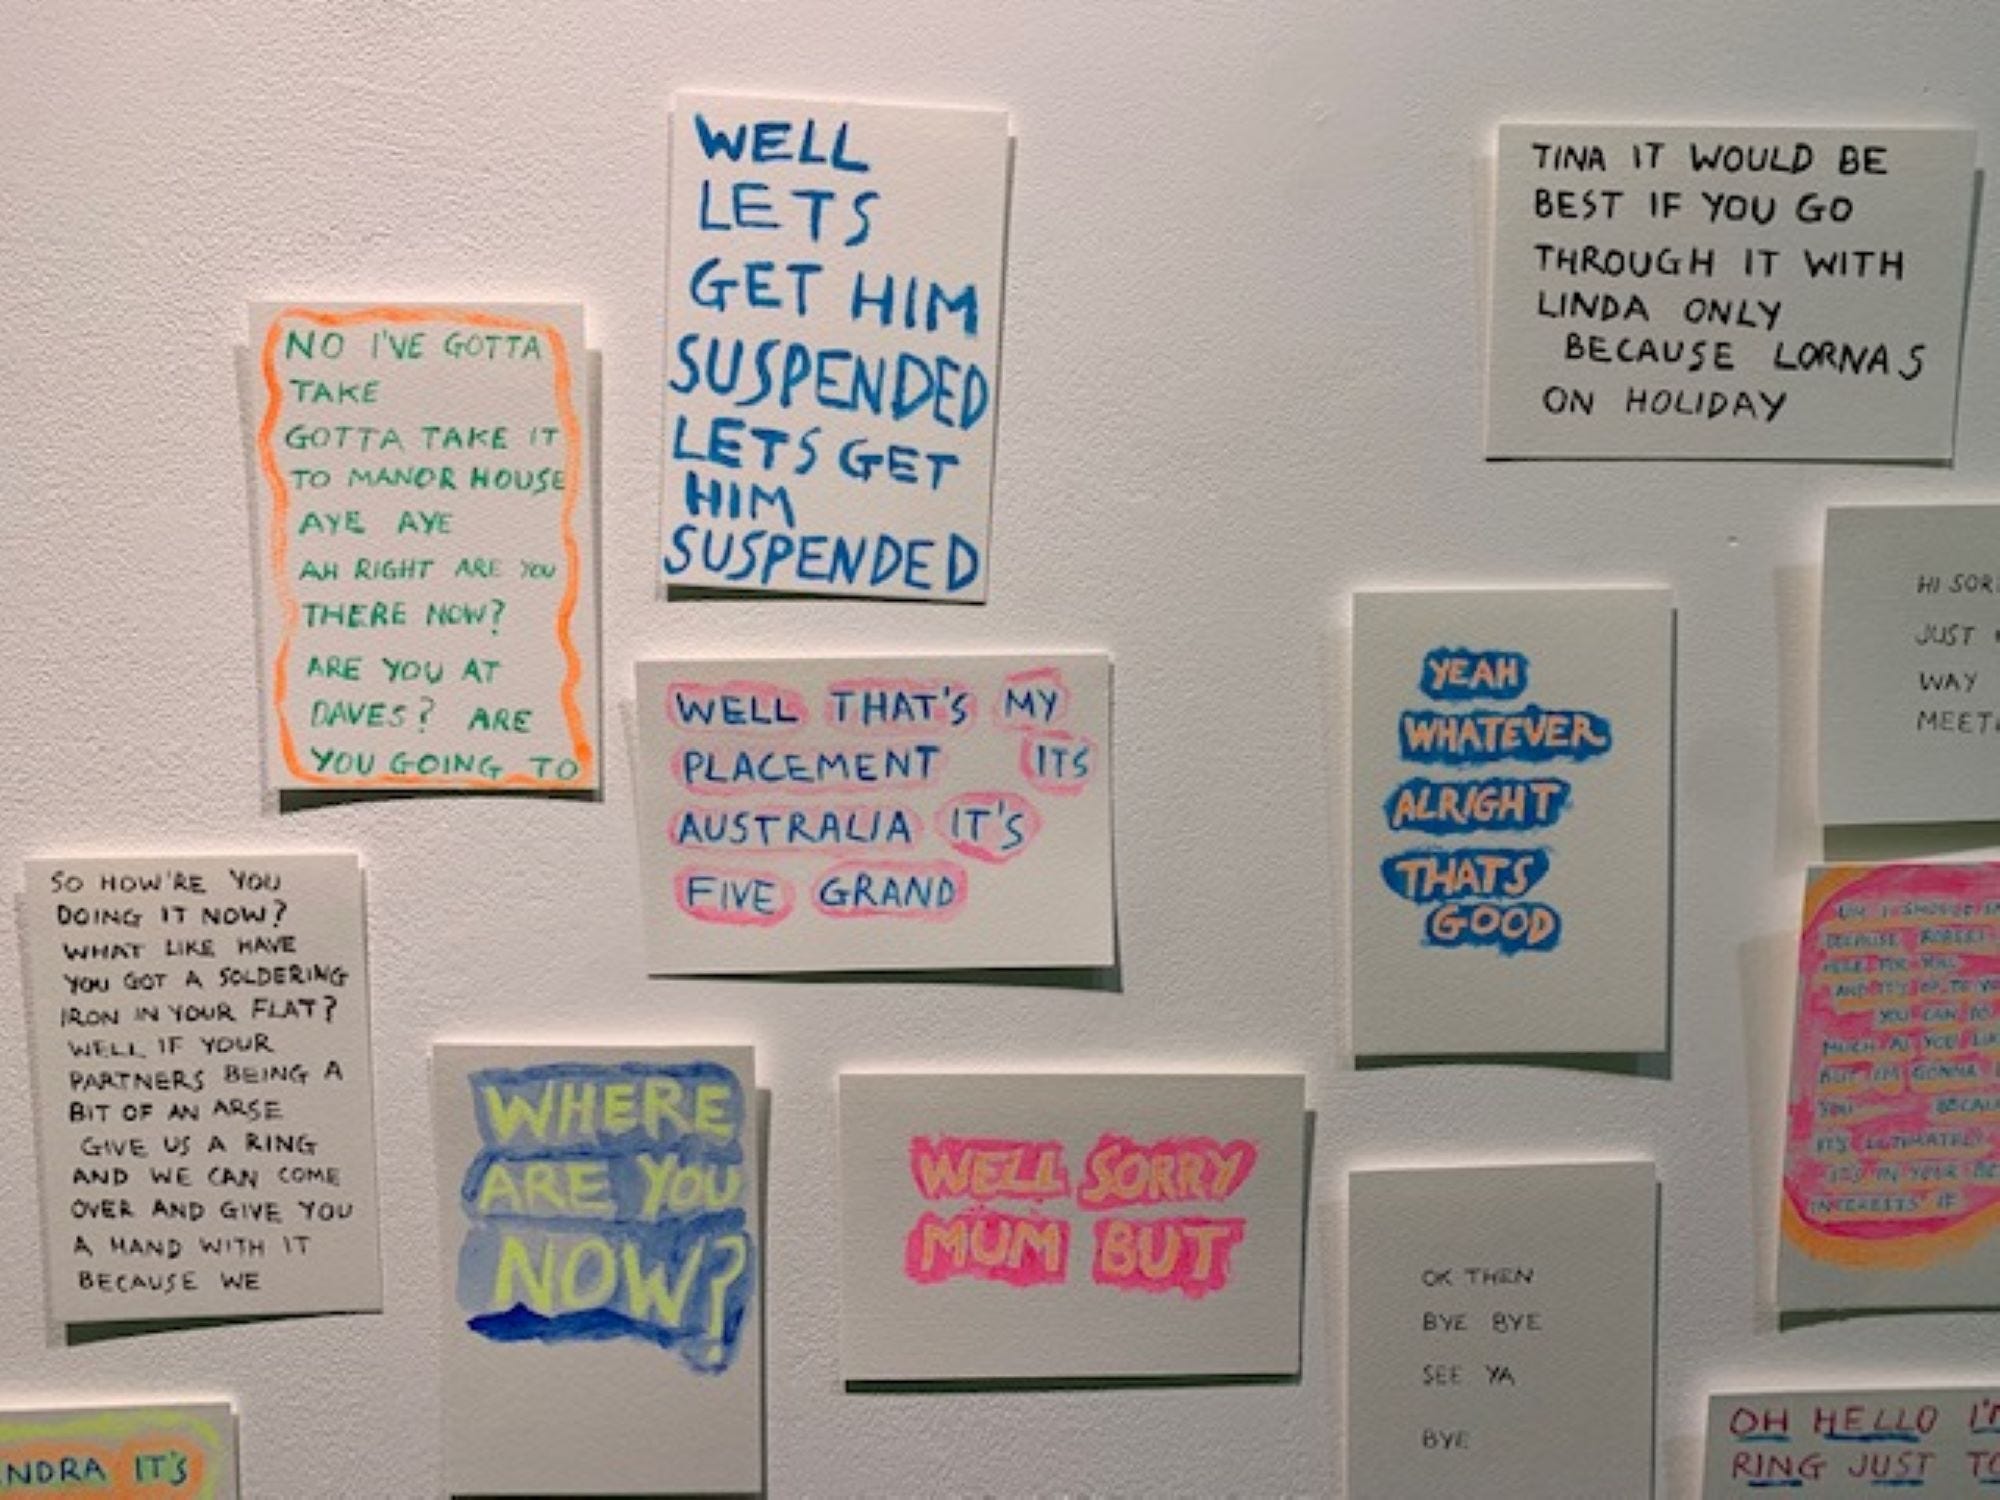 WELL
LETS
GET HIM
SUSPENDED
LETS GET
HIM
SUSPENDED
TINA IT WOULD BE
BEST IF YOU GO
THROUGH IT WITH
LINDA ONLY
BECAUSE LORNAS
ON HOLIDAY
NO I'VE GOTTA
TAKE
GOTTA TAKE IT
TO MANOR HOUSE
AYE AYE
AH RIGHT ARE YOU
THERE NOW?
ARE YOU AT
DAVES? ARE
YOU GOING TO
WELL THAT'S MY
PLACEMENT ITS
AUSTRALIA IT'S
FIVE GRAND
YEAH
WHATEVER
ALRIGHT
THATS
GOOD
HI
JUST
WAY
SO HOW'RE YOU
DOING IT NOW?
WHAT LIKE HAVE
YOU GOT A SOLDERING
IRON IN YOUR FLAT?
WELL IF YOUR
PARTNERS BEING A
BIT OF AN ARSE
GIVE US A RING
AND WE CAN COME
OVER AND GIVE YOU
A HAND WITH IT
BECAUSE WE
WHERE
ARE YOU
NOW?
WELL SORRY
MUM BUT
I SHOULD
BECAUSE ROBERT
HERE FOR YOU
AND IT'S UP TO
YOU CAN DO
MUCH AS YOU
BUT I'M GONNA
YOU
IT'S ULTIMATELY
IT'S IN YOUR
INTERESTS IF
OK THEN
BYE BYE
SEE YA
BYE
IT'S
OH HELLO I'M
RING JUST TO